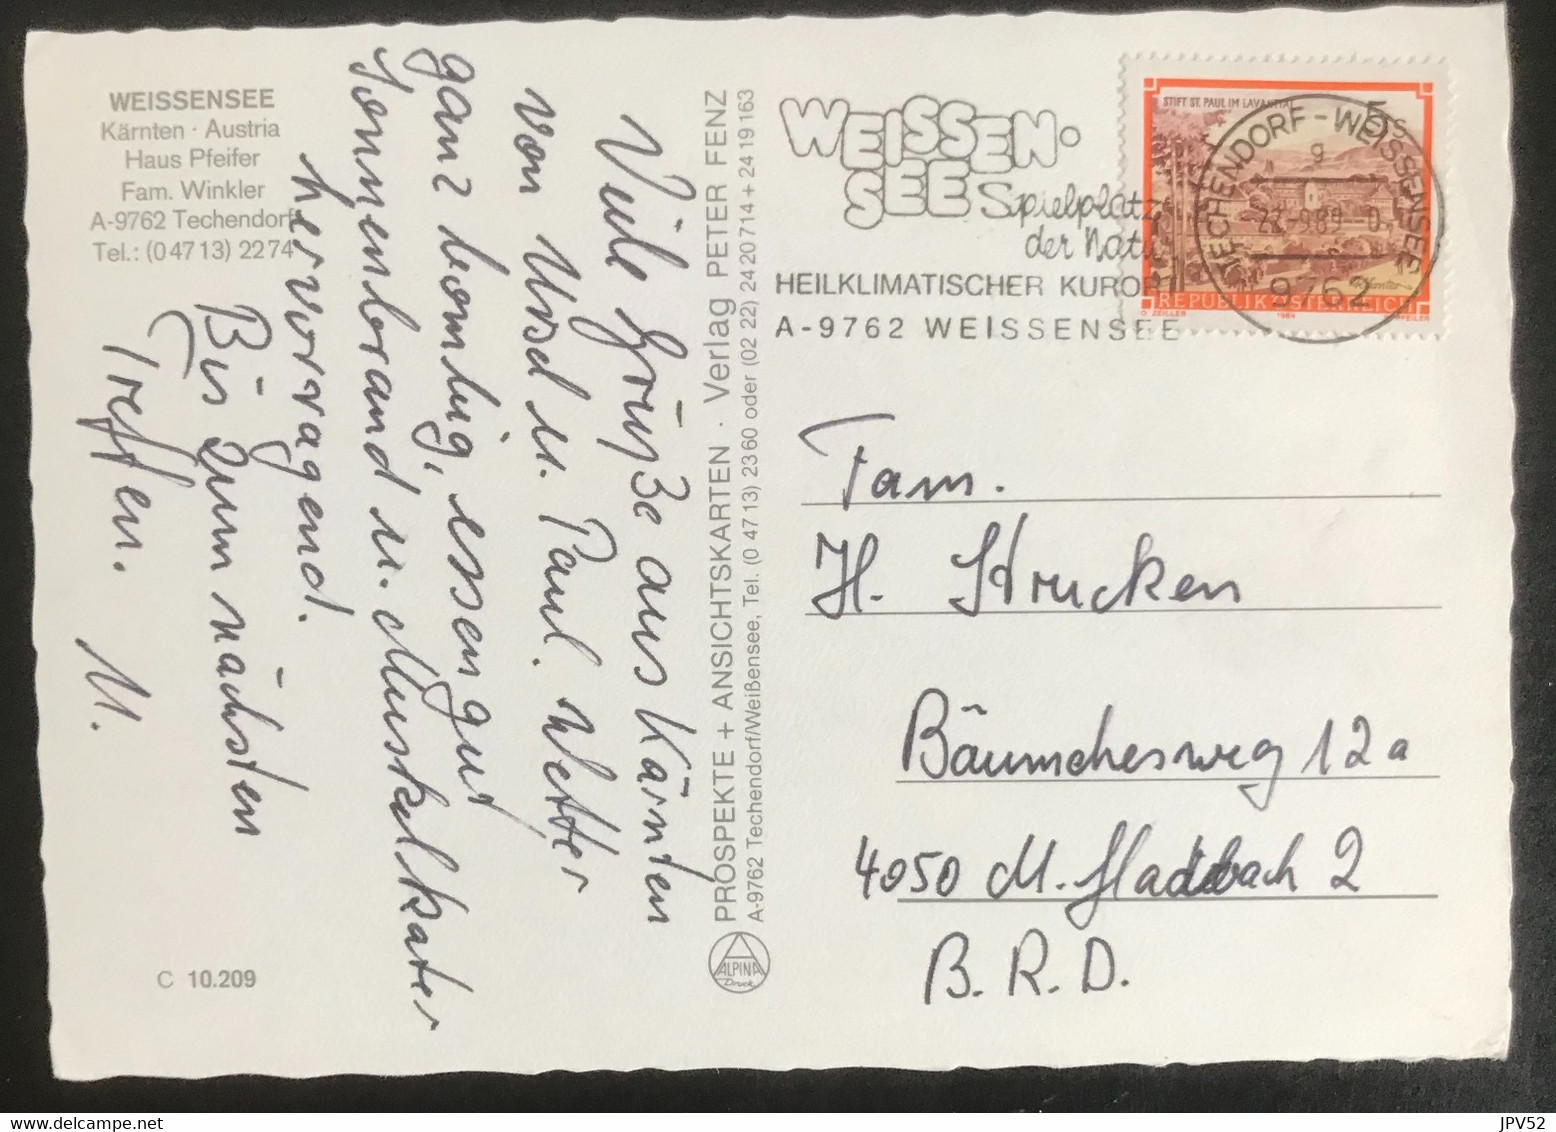 WEISSENSEE
Kärnten · Austria
Haus Pfeifer
Fam. Winkler
A-9762 Techendorf
Tel.: (0 47 13) 22 74
Viele Grüße aus Kärnten
von Ursel u. Paul. Wetter
ganz bombig, essen gut
Sonnenbrand u. Muskelkater
hervorragend.
Bis zum nächsten
Treffen. U.
C 10.209
PROSPEKTE + ANSICHTSKARTEN · Verlag PETER FENZ
A-9762 Techendorf/Weißensee, Tel. (0 47 13) 23 60 oder (02 22) 24 20 714 + 24 19 163
ALPINA
Druck
WEISSEN-
SEE Spielplatz
der Natur
HEILKLIMATISCHER KURORT
A-9762 WEISSENSEE
STIFT ST. PAUL IM LAVANTTAL
5 S
REPUBLIK ÖSTERREICH
O. ZEILLER 1984
TECHENDORF-WEISSENSEE
9
22.-9.89
9762
Fam.
H. Strucken
Bäumchesweg 12a
4050 M. Gladbach 2
B. R. D.
JPV52